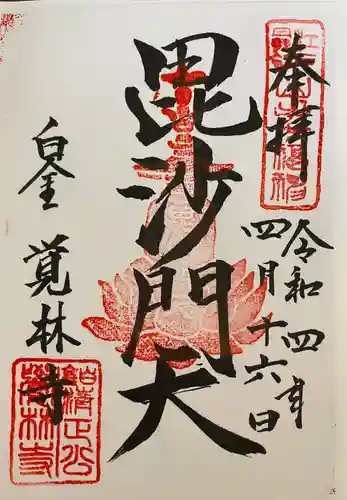 奉拝
令和四年
四月十六日
毘沙門天
白金
覚林寺